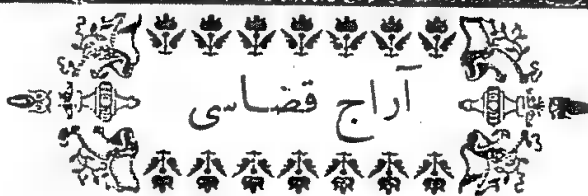 آراج قضاسی